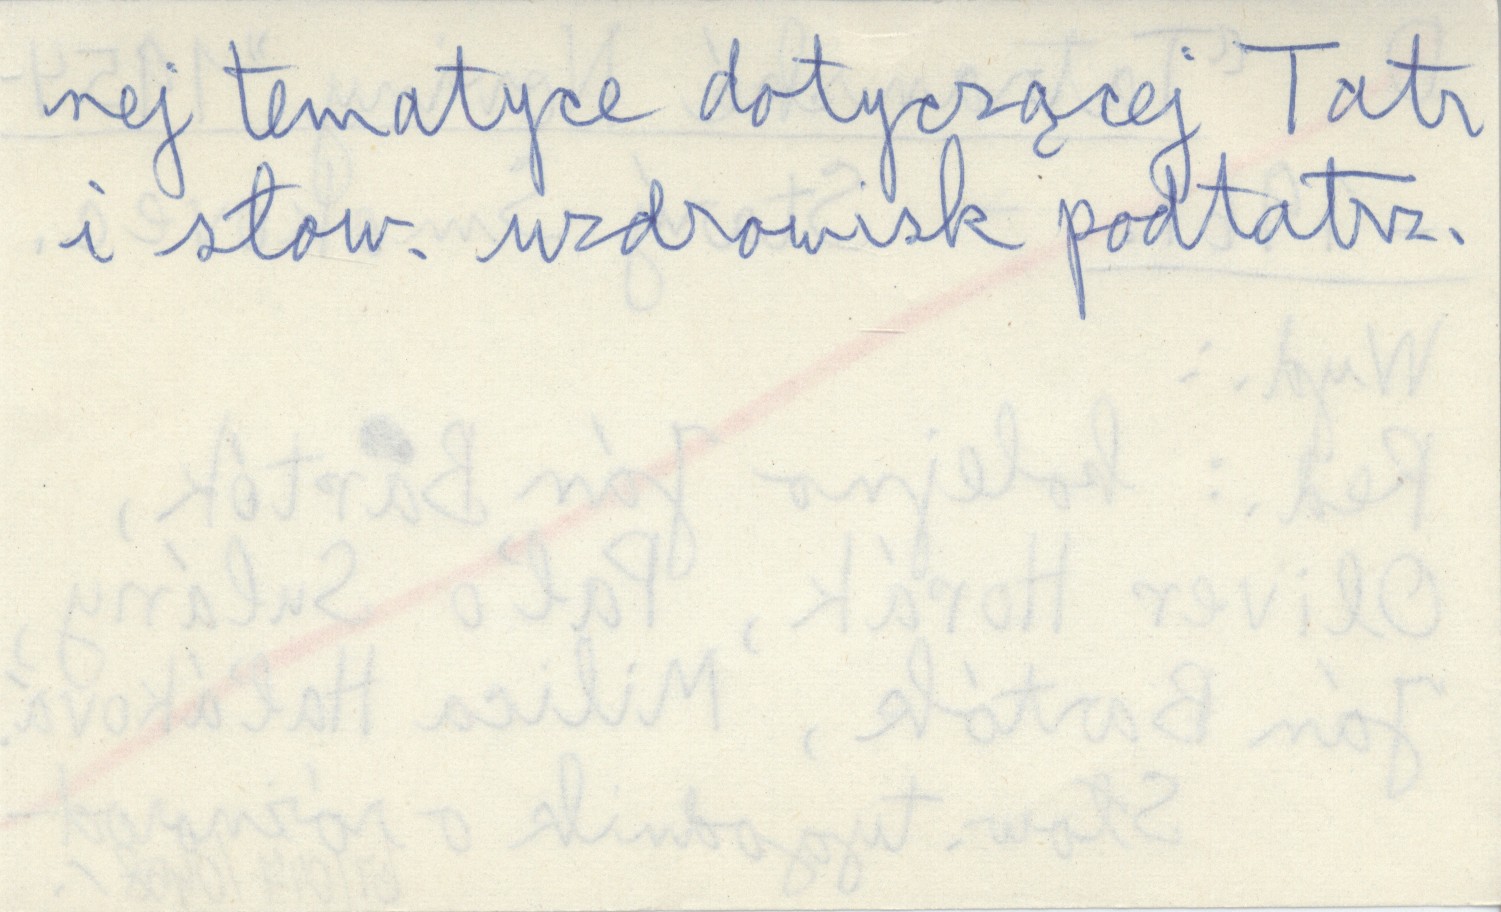 nej tematyce dotyczącej Tatr
i słow. uzdrowisk podtatrz.